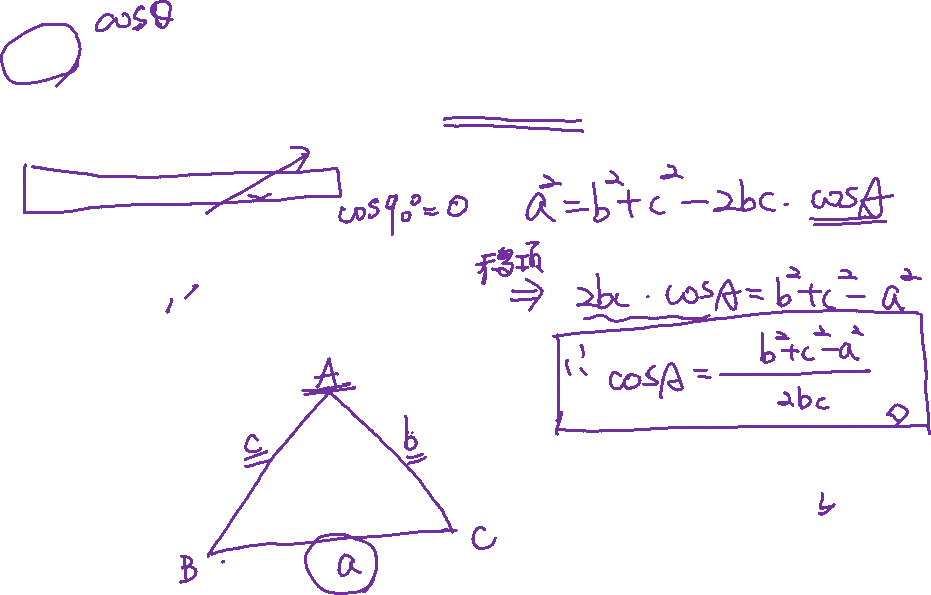 cosθ
cos90°=0
a²=b²+c²-2bc·cosA
移项
⇒ 2bc·cosA=b²+c²-a²
∴ cosA=\frac{b²+c²-a²}{2bc}
A
c
b
B
a
C